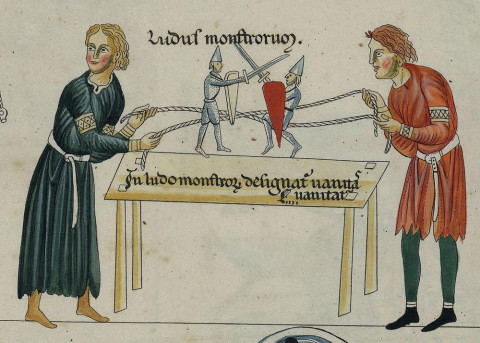 Ludus monstrorum.
In ludo monstroꝝ designat' uanita
uanitat'